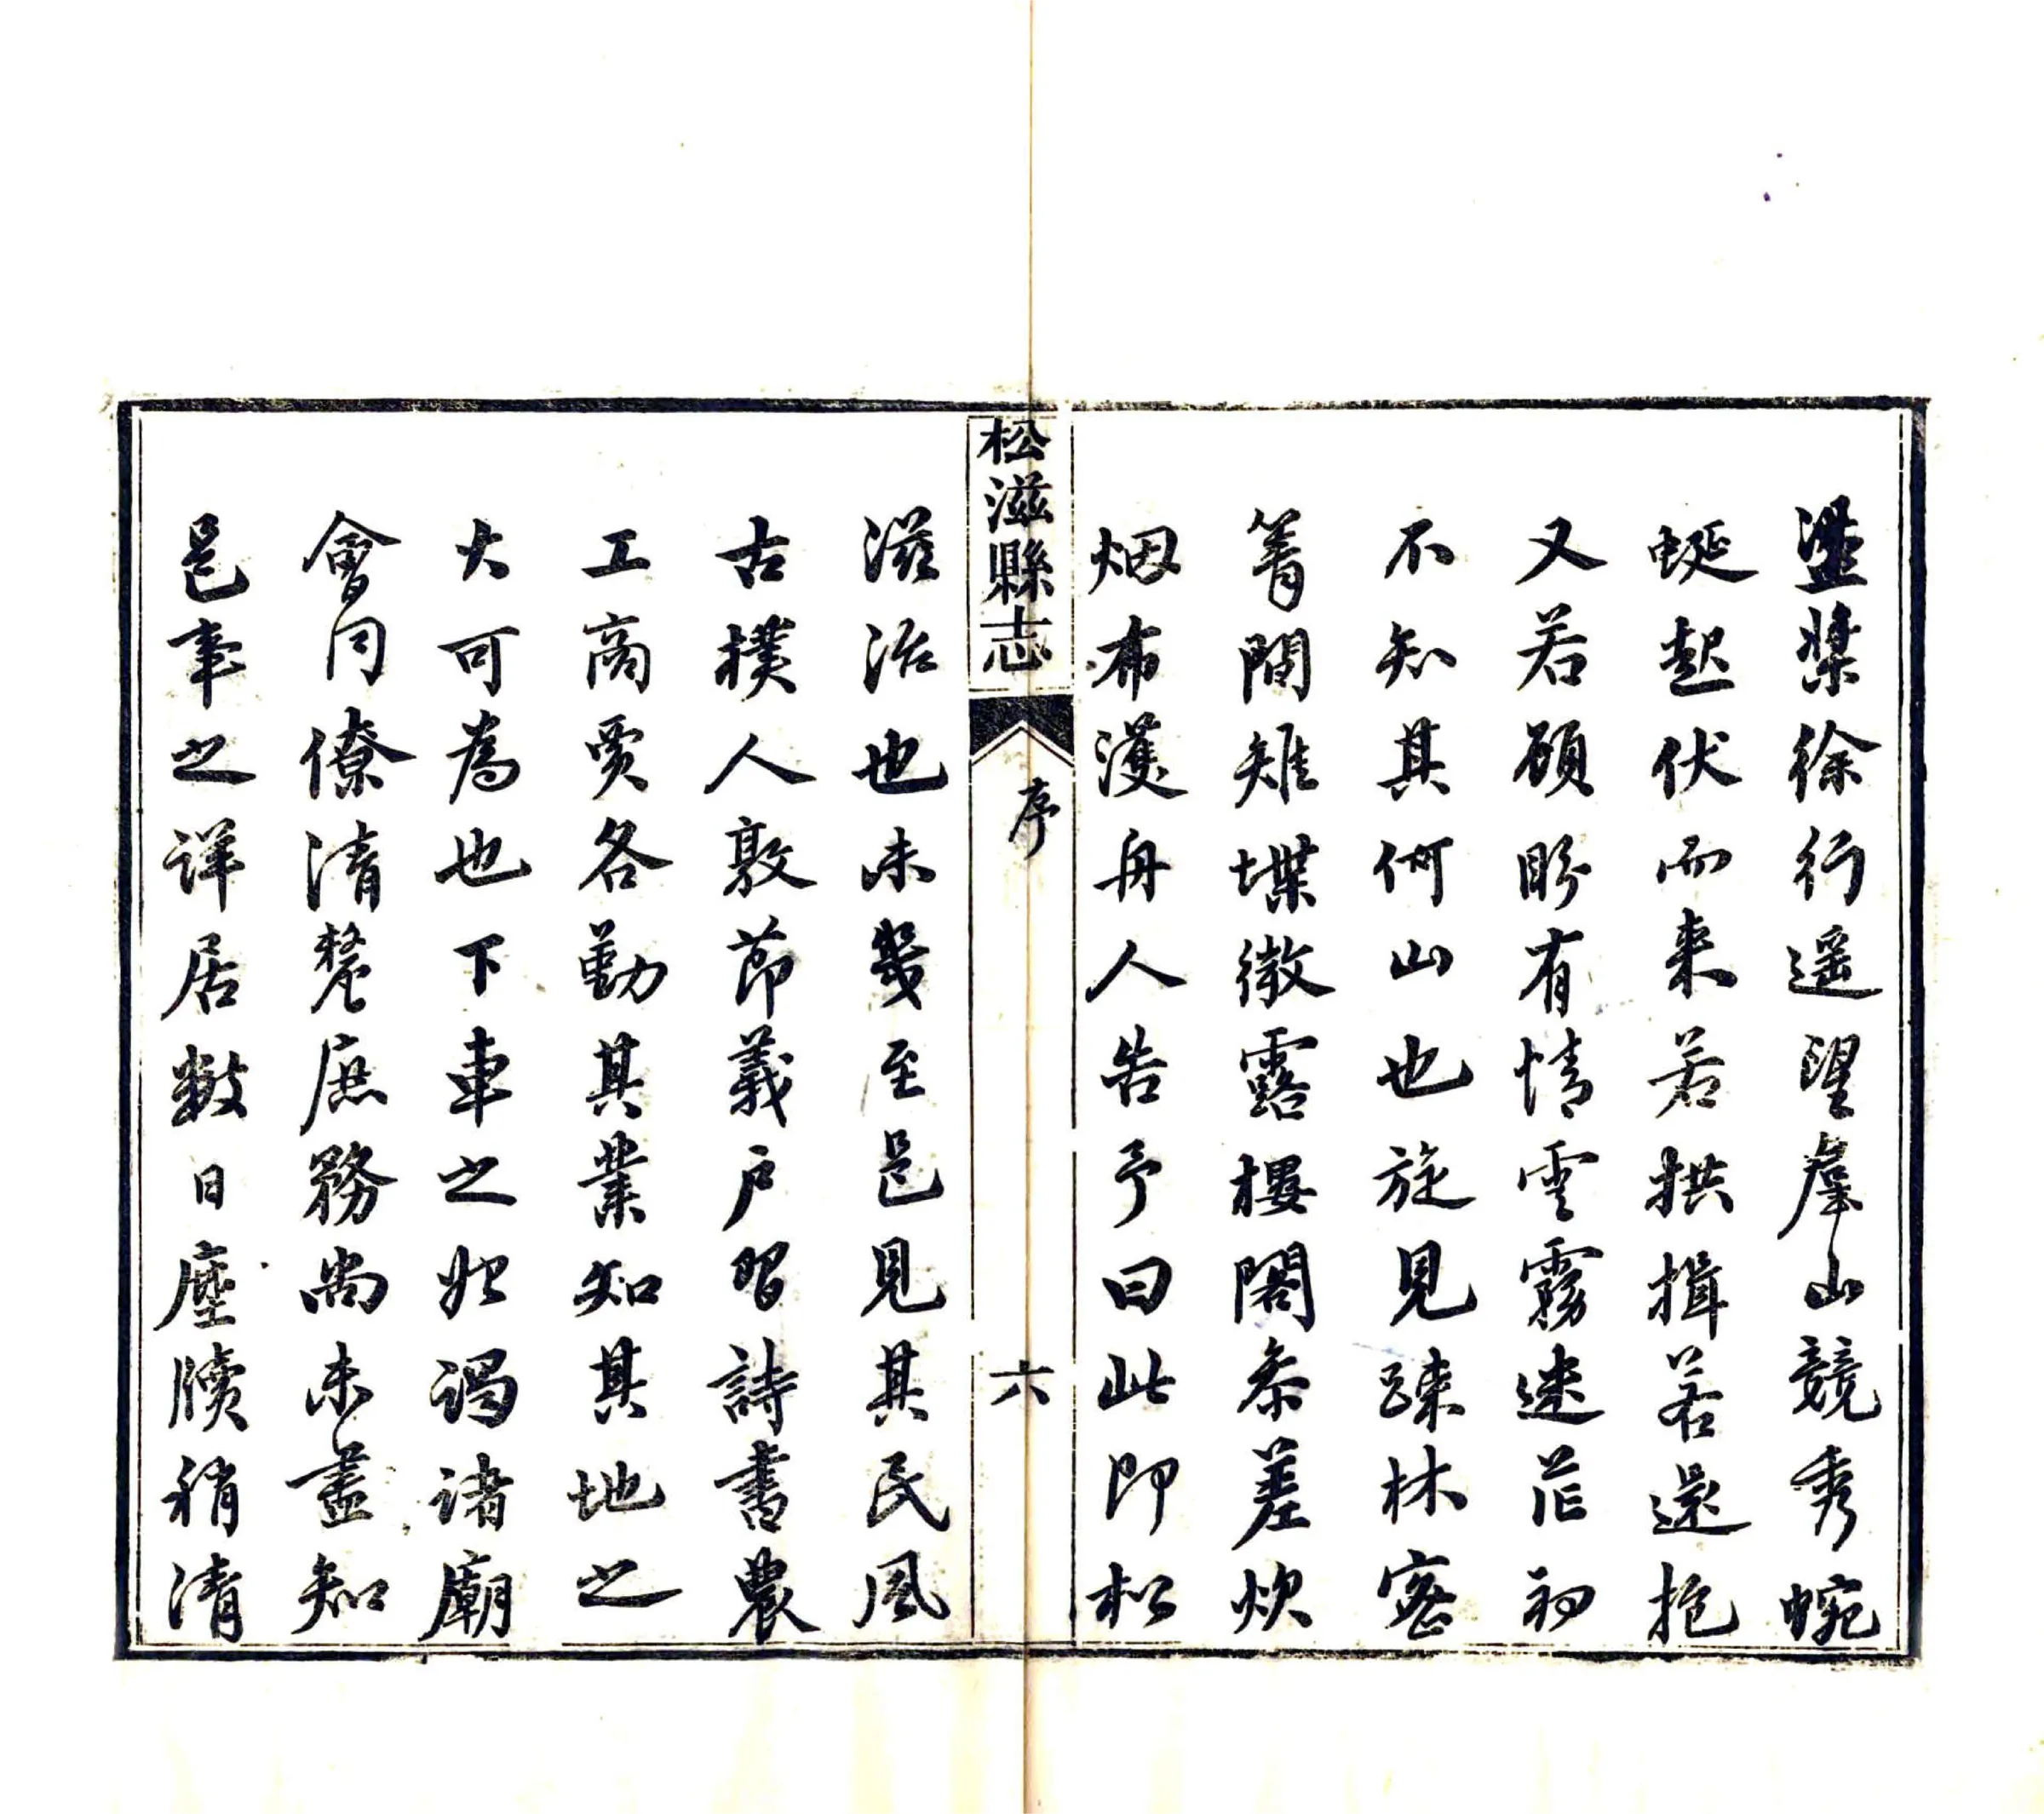 盪槳徐行遥望羣山競秀蜿
蜒起伏而来若拱揖若還抱
又若顧盼有情雲霧迷茫初
不知其何山也旋見疎林密
箐間雉堞微露樓閣參差炊
烟布濩舟人告予曰此即松
松滋縣志
序
六
滋治也未幾至邑見其民風
古樸人敦節義戶習詩書農
工商賈各勤其業知其地之
大可為也下車之始謁諸廟
會同僚清釐庶務尚未盡知
邑事之詳居數日塵牘稍清